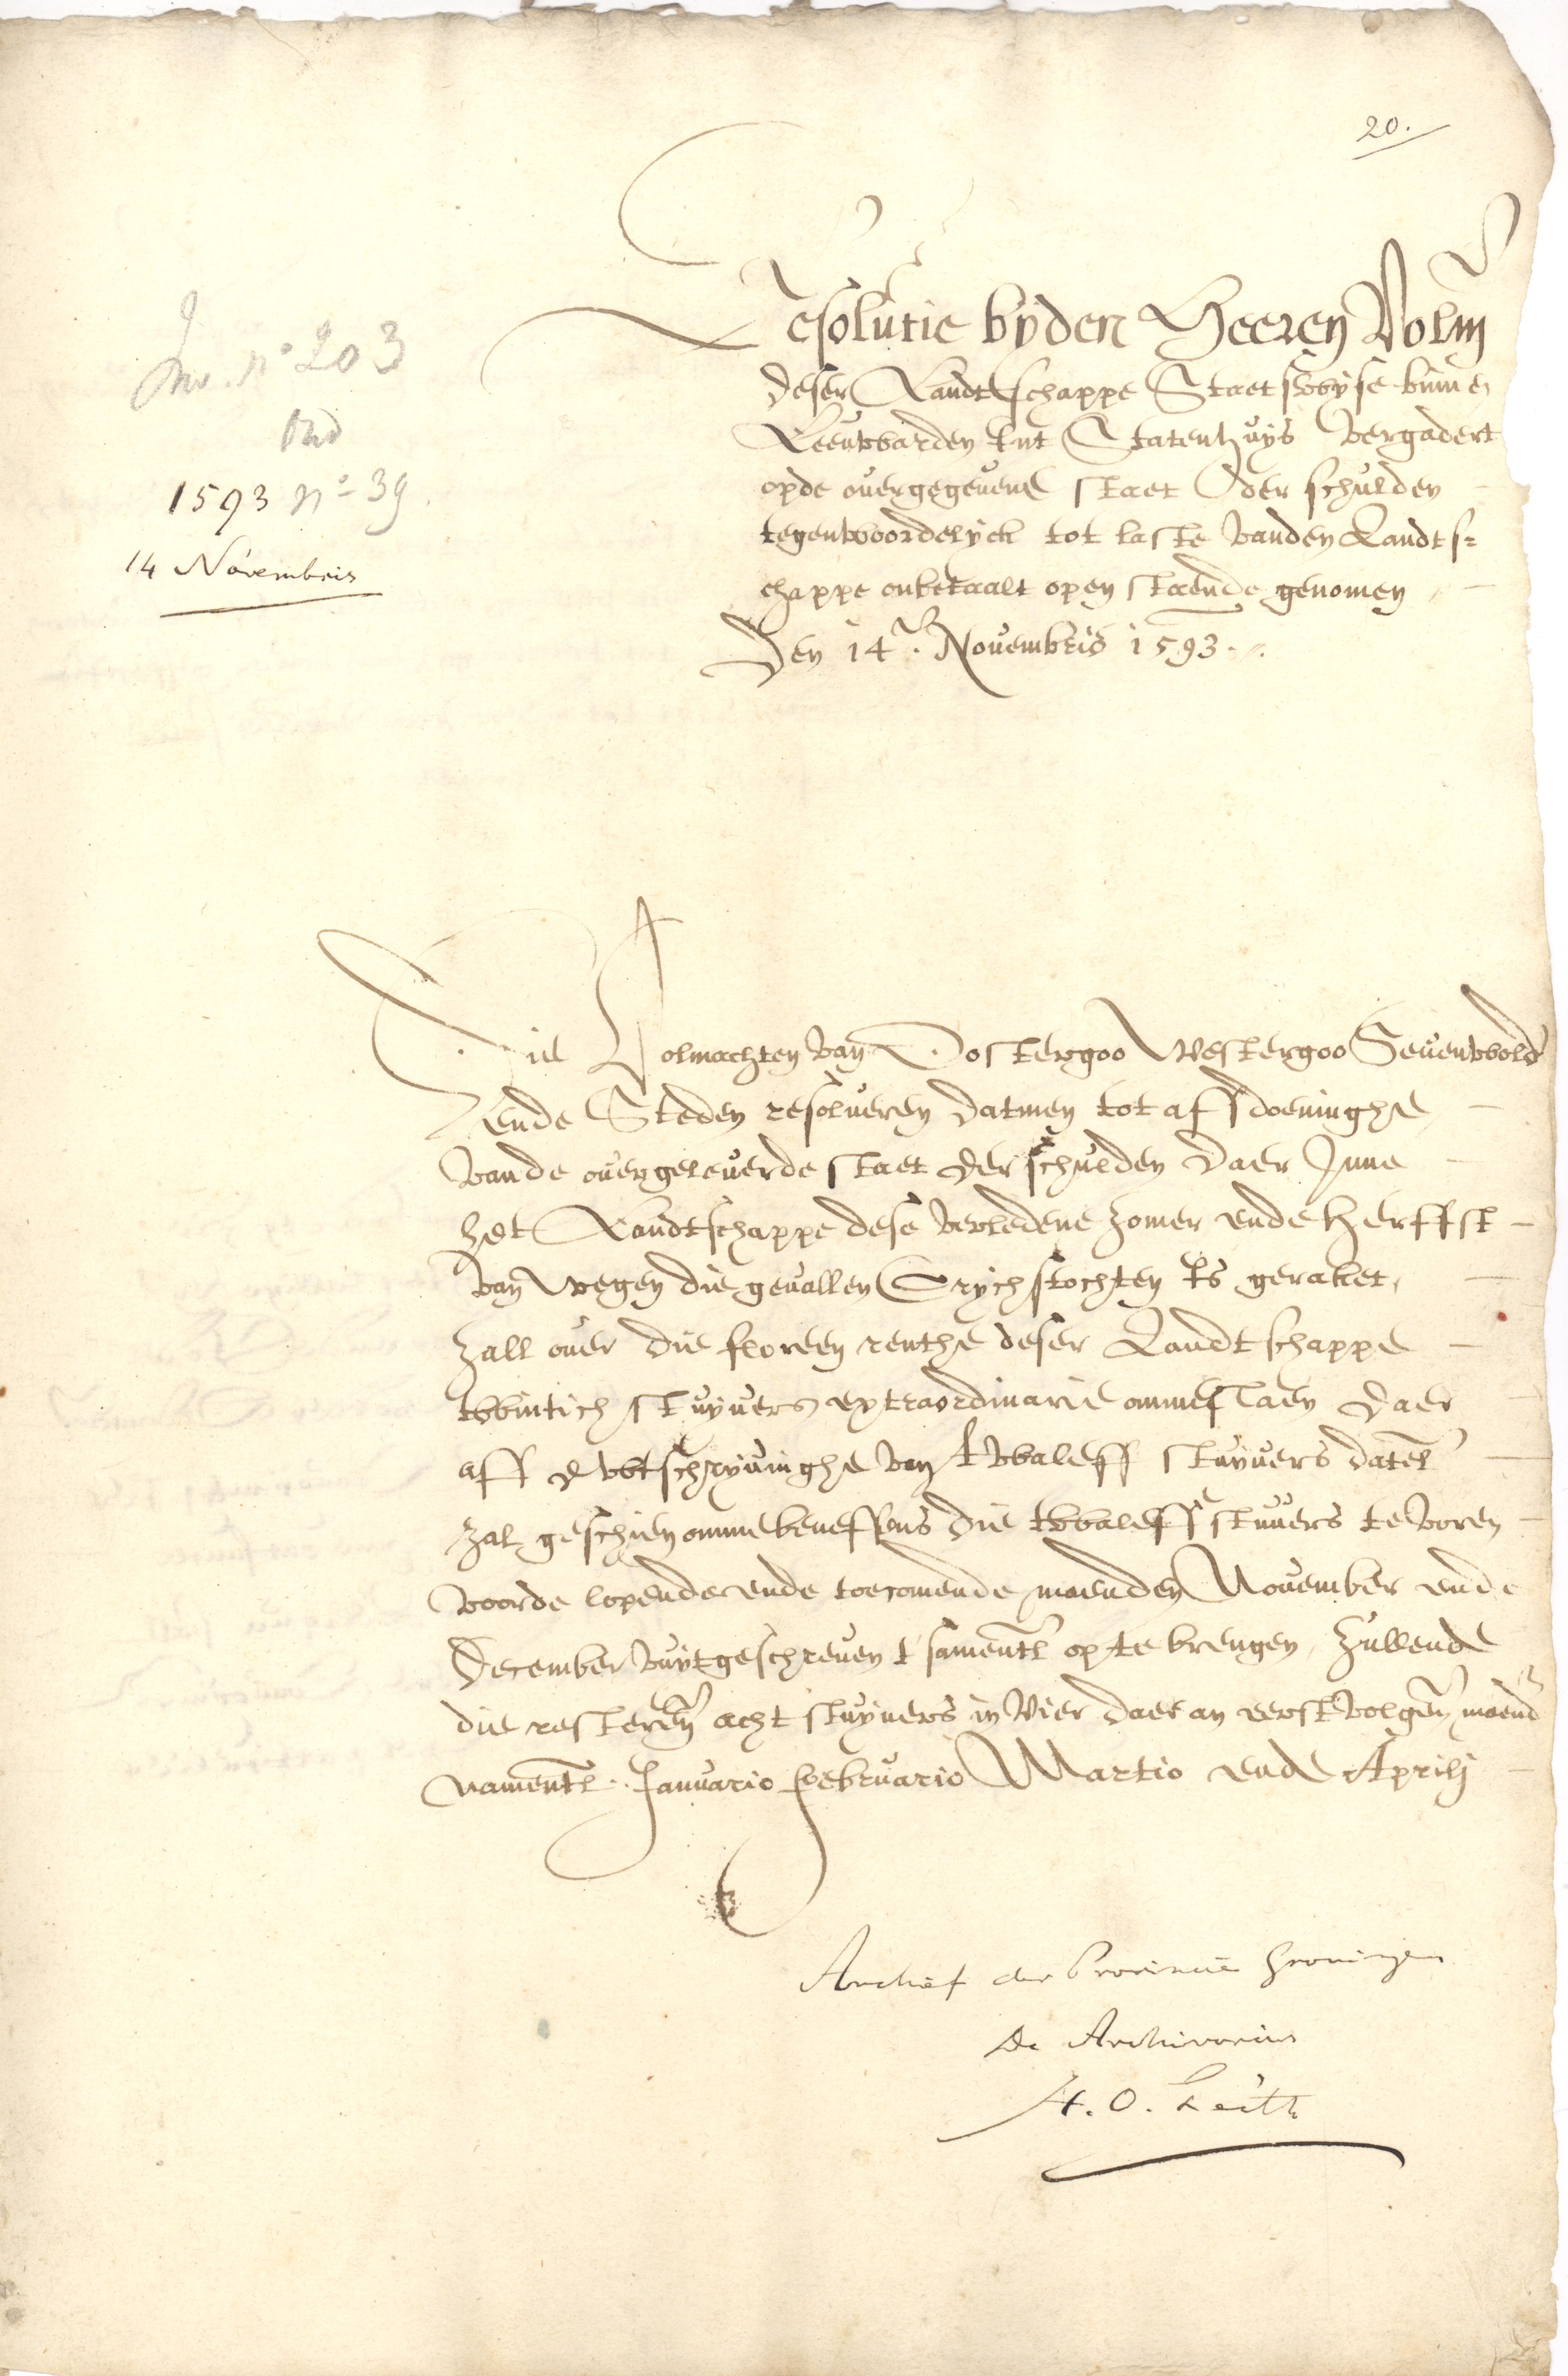 20.
Inv. nº 203
Oud
1593 nº 39.
14 Novembris
Resolutie byden Heeren Volm
deser Landtschappe Staetswyse binnen
Leeuwarden int Statenhuys vergadert
opde ouergegeuene staet der schulden
tegenwoordelyck tot laste vanden Landts=
chappe onbetaalt open staende genomen
Den 14.en Nouembris 1593.
Die Volmachten van Oostergoo Westergoo Seuenwold
ende Steden resolueren datmen tot affdoeninghe
vande ouergeleuerde staet der schulden daer Inne
het Landtschappe dese verledene zomer ende herffst
van wegen die geuallen Crychstochten is geraket,
zall ouer die floreen renthe deser Landtschappe
twintich stuyuers extraordinarie ommeslaen daer
aff d wtschryuinghe van twaleff stuyuers datel
zal geschien omme beneffens die twaleff stuuers te voren
voorde lopende ende toecomende maenden Nouember ende
December vuytgeschreuen t samentl op te brengen, zullende
die resteren acht stuyuers in vier daer an eerst volgen maend
namentl. Januario Februario Martio ende Aprilj
Archief der Provincie Groningen
De Archivarius
H. O. Feith